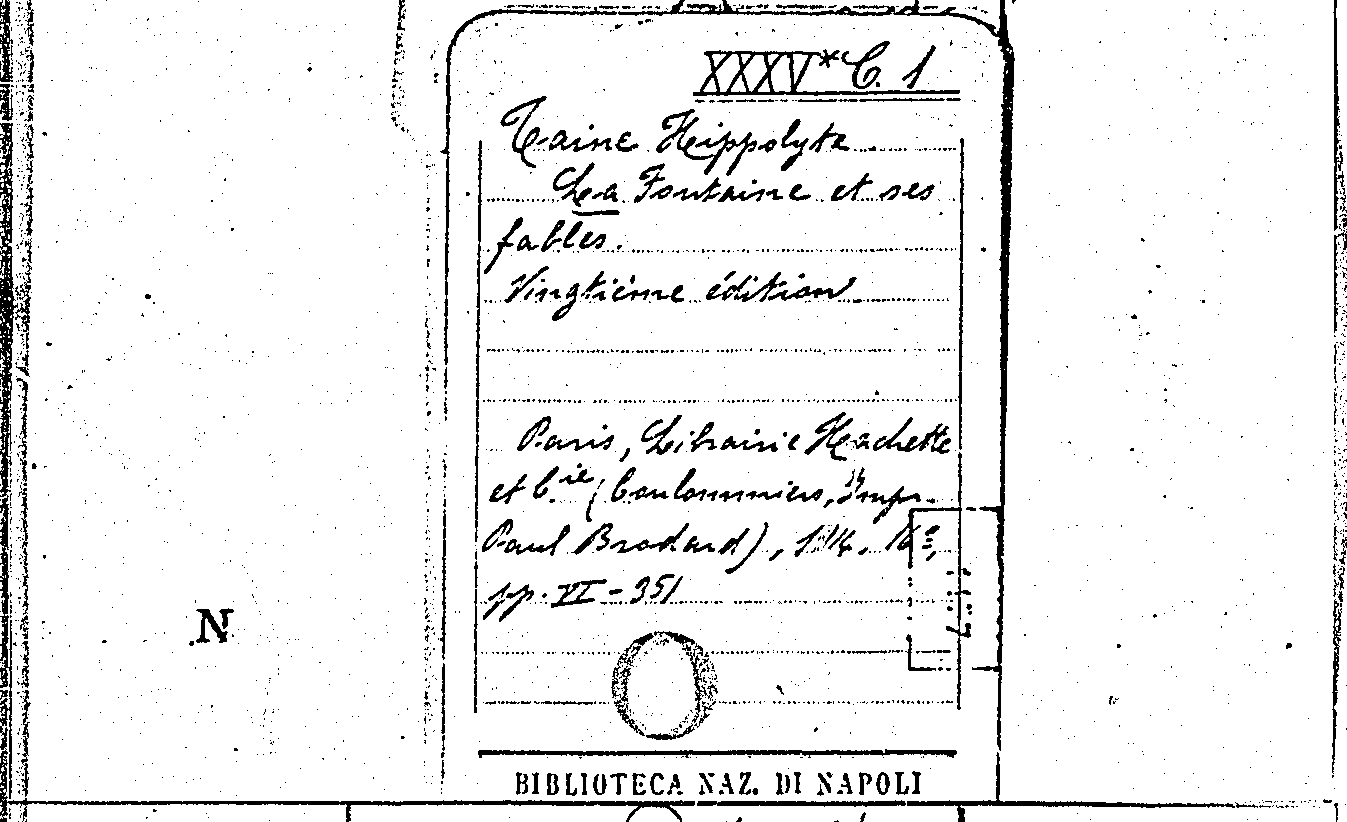 XXXV*C. 1
Taine Hippolyte.
La Fontaine et ses
fables.
Vingtième édition.
Paris, Librairie Hachette
et C.ie (Coulommiers, Impr.
Paul Brodard), 1914. 16°,
pp. VI-351
N
BIBLIOTECA NAZ. DI NAPOLI